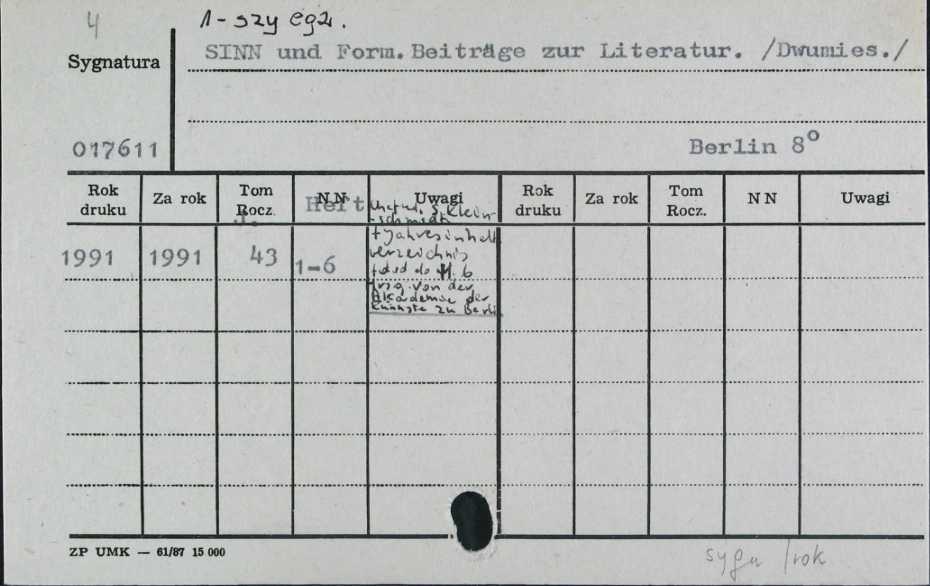 4
1-szy egz.
Sygnatura
SINN und Form. Beiträge zur Literatur. /Dwumies./
017611
Berlin 8°
Rok druku
Za rok
Tom Rocz.
NN
Heft
Uwagi
Rok druku
Za rok
Tom Rocz.
NN
Uwagi
S. Klein-
schmidt
1991 1991 43 1-6
+ Jahresinhalt
verzeichnis
do H. 6
hrsg. von der
Akademie der
Künste zu Berlin
ZP UMK — 61/87 15 000
sygn /rok